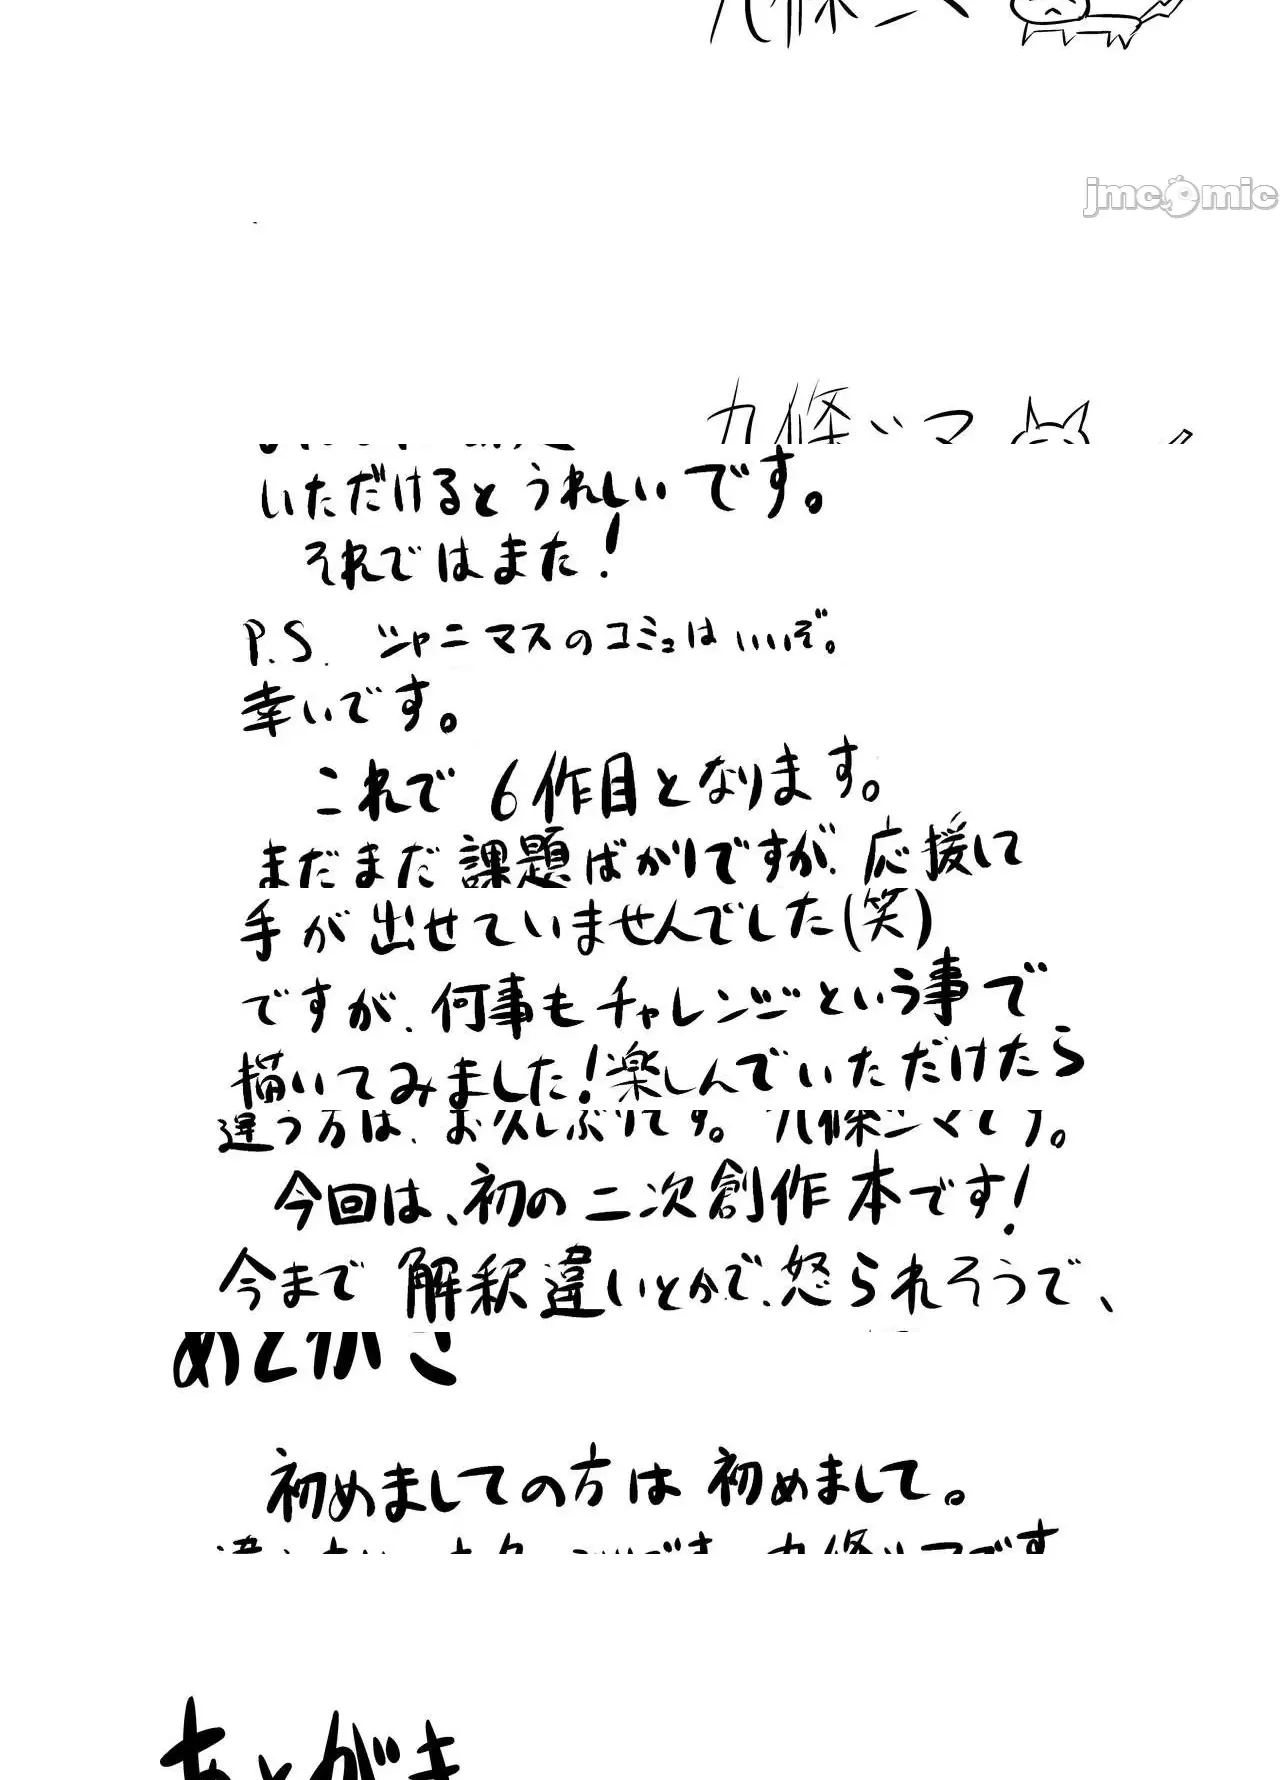 九條シマ
jmcomic
九條シマ
いただけるとうれしいです。
それではまた!
P.S. シャニマスのコミュはいいぞ。
幸いです。
これで6作目となります。
まだまだ課題ばかりですが、応援して
手が出せていませんでした(笑)
ですが、何事もチャレンジという事で
描いてみました!楽しんでいただけたら
違う方は、お久しぶりです。九條シマです。
今回は、初の二次創作本です!
今まで解釈違いとかで、怒られそうで、
あとがき
初めましての方は初めまして。
あとがき